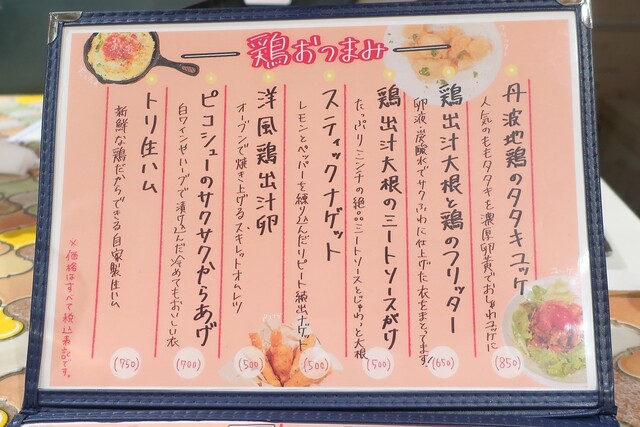 鶏おつまみ
丹波地鶏のタタキユッケ
人気のももタタキを濃厚卵黄でおしゃれユッケに
(850)
鶏出汁大根と鶏のフリッター
卵液・炭酸水でサクふわに仕上げた衣をまとってます。
(650)
鶏出汁大根のミートソースがけ
たっぷりミンチの絶品ミートソースとじゅわっと大根
(500)
スティックナゲット
レモンとペッパーを練り込んだリピート続出ナゲット
(500)
洋風鶏出汁卵
オーブンで焼き上げるスキレットオムレツ
(500)
ピコシューのサクサクからあげ
白ワインやハーブで漬け込んだ冷めてもおいしい衣
(700)
トリ生ハム
新鮮な鶏だからできる自家製生ハム
(750)
※価格はすべて税込表記です。